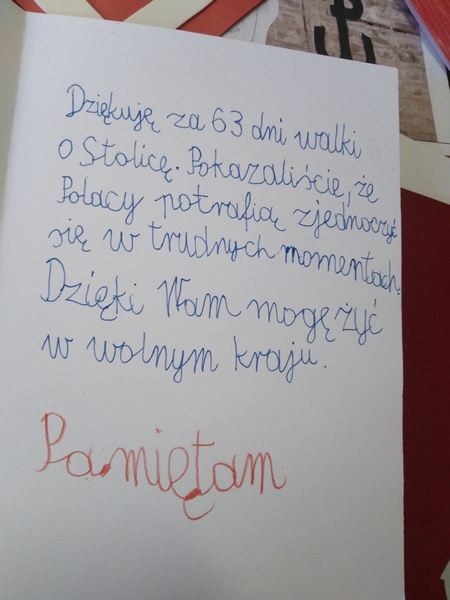 Dziękuję za 63 dni walki
o Stolicę. Pokazaliście, że
Polacy potrafią zjednoczyć
się w trudnych momentach.
Dzięki Wam mogę żyć
w wolnym kraju.
Pamiętam